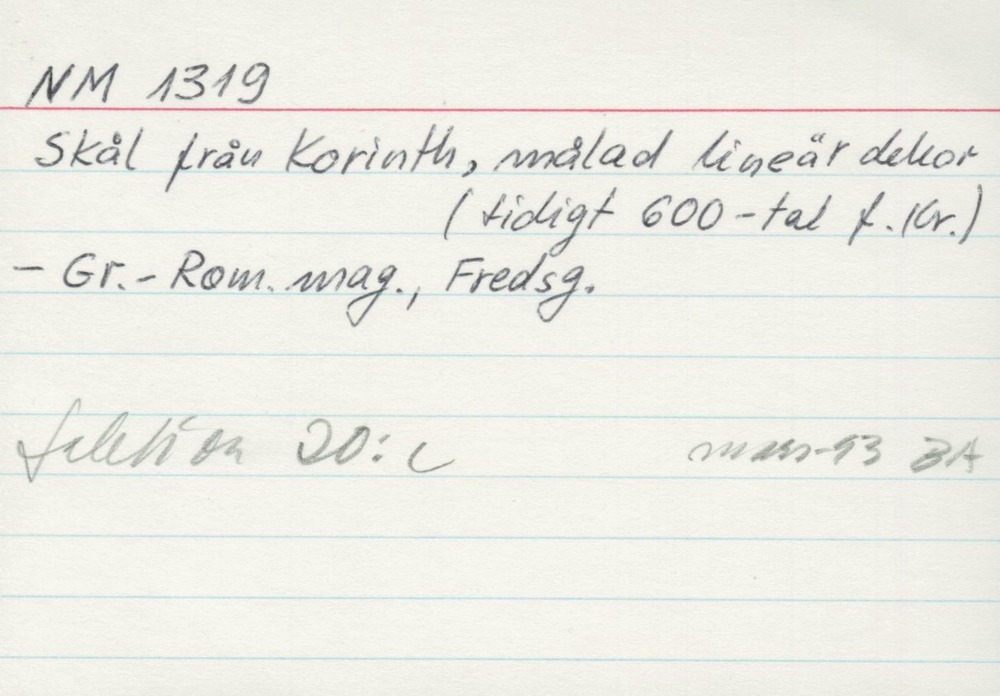 NM 1319
Skål från Korinth, målad lineär dekor
(tidigt 600-tal f. Kr.)
- Gr.-Rom. mag., Fredsg.
Sektion 20: c mars-93 BA